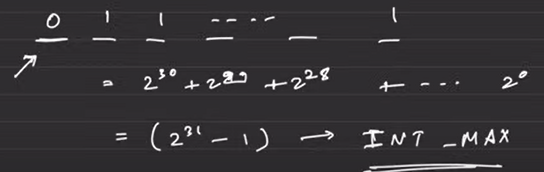 0 1 1 ---- 1
= 2^30 + 2^29 + 2^28 + --- 2^0
= (2^31 - 1) → INT_MAX